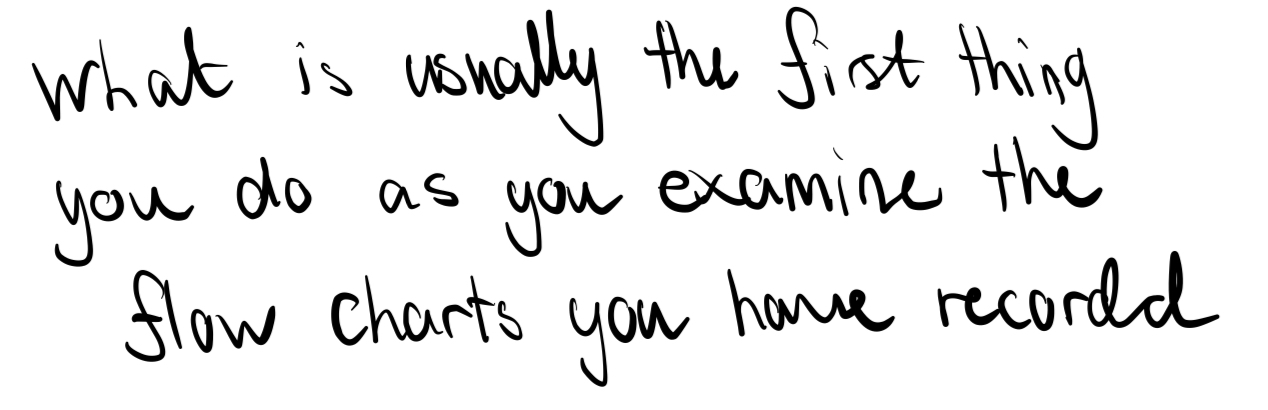 what is usually the first thing
you do as you examine the
flow charts you have recorded